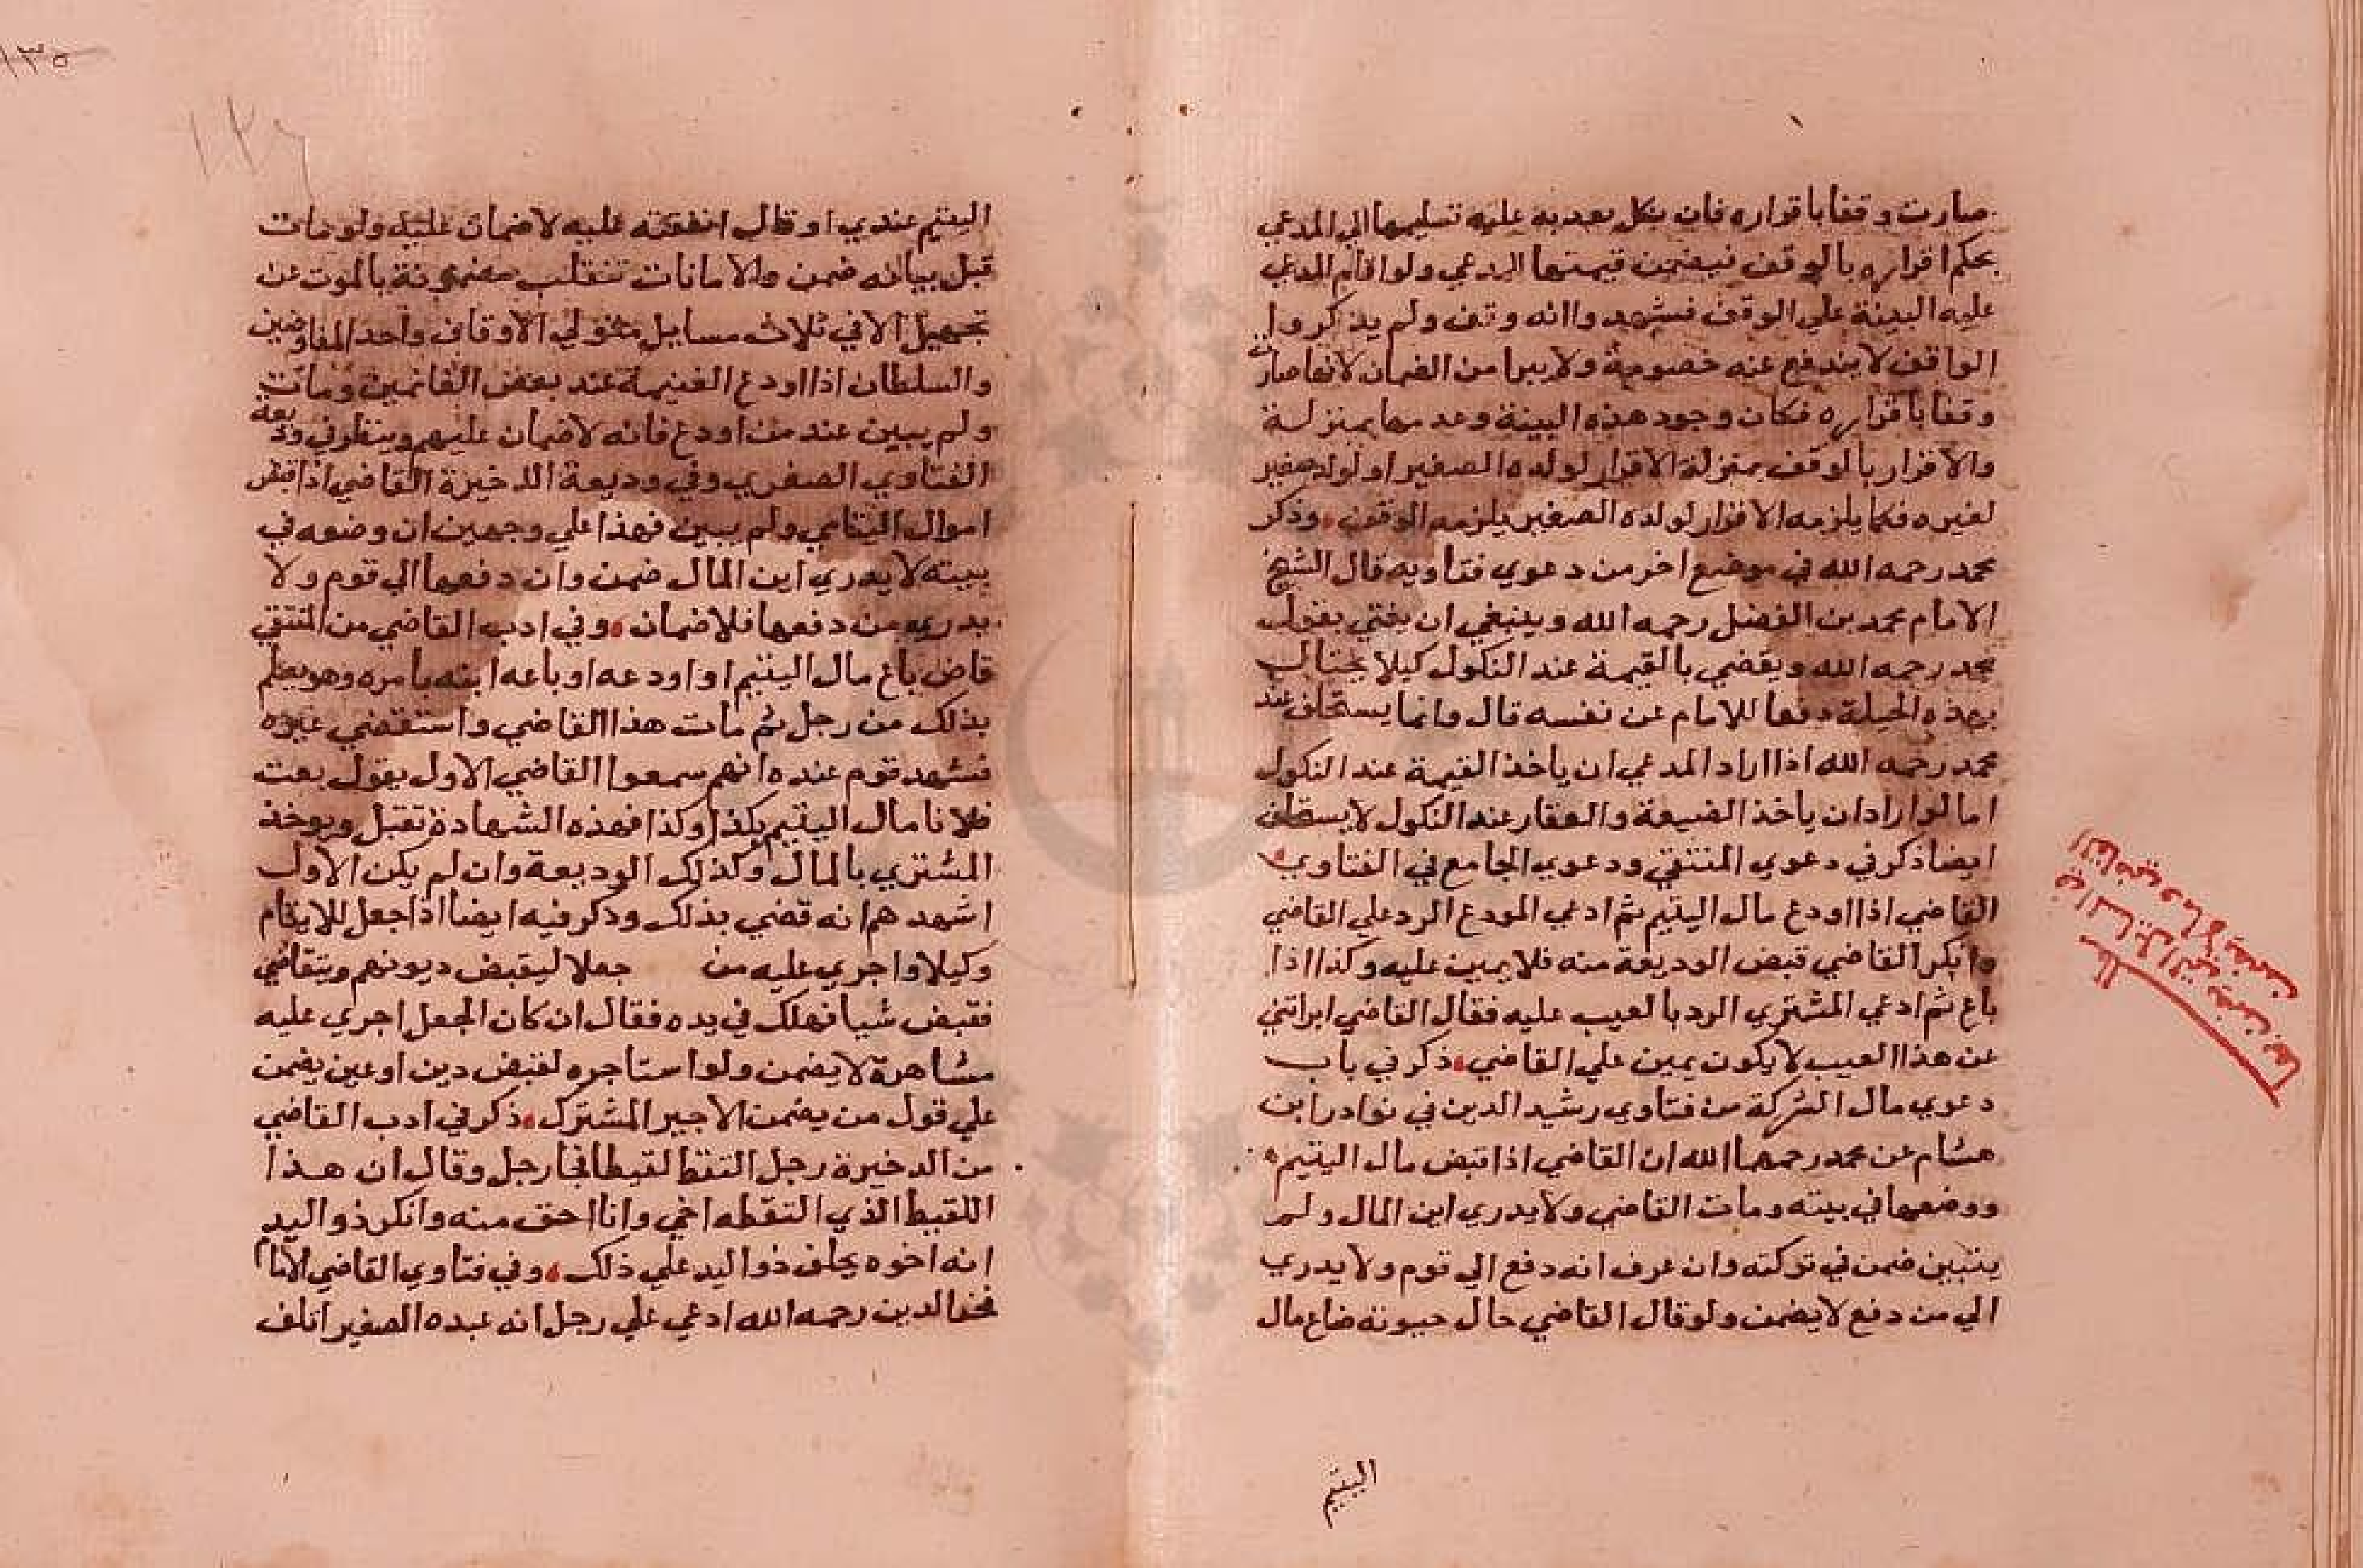 صارت وقفا باقراره فان نكل بعد به عليه تسليمها الي المدعي
بحكم اقراره بالوقف فيضمن قيمتها للمدعي ولو اقام المدعي
عليه البينة علي الوقف فشهدوا انه وقف ولم يذكروا
الواقف لا يندفع عنه خصومة ولا يبرا من الضمان لانها صارت
وقفا باقراره فكان وجود هذه البينة وعدمها بمنزلة
والاقرار بالوقف بمنزلة الاقرار لولده الصغير او لولد صغير
لغيره فكما يلزمه الاقرار لولده الصغير يلزمه الوقف وذكر
محمد رحمه الله في موضع اخر من دعوي فتاويه قال الشيخ
الامام محمد بن الفضل رحمه الله وينبغي ان يفتي بقول
محمد رحمه الله ويقضي بالقيمة عند النكول كيلا يحتال
بهذه الحيلة دفعا للامام عن نفسه قال وانما يستحلف عند
محمد رحمه الله اذا اراد المدعي ان ياخذ القيمة عند النكول
اما لو اراد ان ياخذ الضيعة والعقار عند النكول لا يستحلف
ايضا ذكر في دعوي المنتقي ودعوي الجامع في الفتاوي
القاضي اذا اودع مال اليتيم ثم ادعي المودع الرد علي القاضي
وانكر القاضي قبض الوديعة منه فلا يمين عليه وكذا اذا
باع ثم ادعي المشتري الرد بالعيب عليه فقال القاضي ابراتني
عن هذا العيب لا يكون يمين علي القاضي ذكر في باب
دعوي مال الشركة من فتاوي رشيد الدين في نوادر ابن
هشام عن محمد رحمهما الله ان القاضي اذا قبض مال اليتيم
ووضعها في بيته ومات القاضي ولا يدري اين المال ولم
يتبين ضمن في تركته وان عرف انه دفع الي قوم ولا يدري
الي من دفع لا يضمن ولو قال القاضي حال حيوته ضاع مال
اليتيم
اليتيم عندي او قال انفقته عليه لا ضمان عليه ولو مات
قبل بيانه ضمن والامانات تنقلب مضمونة بالموت عن
تجهيل الا في ثلاث مسايل متولي الاوقاف واحد المفاوضين
والسلطان اذا اودع الغنيمة عند بعض الغانمين ومات
ولم يبين عند من اودع فانه لا ضمان عليهم وينظر في وديعة
الفتاوي الصغري وفي وديعة الذخيرة القاضي اذا قبض
اموال اليتامي ولم يبين فهذا علي وجهين ان وضعه في
بيته لا يدري اين المال ضمن وان دفعها الي قوم ولا
يدري من دفعها فلا ضمان وفي ادب القاضي من المنتقي
قاض باع مال اليتيم او اودعه او باعه ابنه بامره وهو يعلم
بذلك من رجل ثم مات هذا القاضي واستقضي غيره
فشهد قوم عنده انهم سمعوا القاضي الاول يقول بعت
فلانا مال اليتيم بكذا وكذا فهذه الشهادة تقبل ويوخذ
المشتري بالمال وكذلك الوديعة وان لم يكن الاول
اشهدهم انه قضي بذلك وذكر فيه ايضا اذا جعل للايتام
وكيلا واجري عليه من جعلا ليقبض ديونهم ويتقاضي
فقبض شيا فهلك في يده فقال ان كان الجعل اجري عليه
مشاهرة لا يضمن ولو استاجره لقبض دين او عين يضمن
علي قول من يضمن الاجير المشترك ذكر في ادب القاضي
من الذخيرة رجل التقط لقيطا فجا رجل وقال ان هذا
اللقيط الذي التقطه اخي وانا احق منه وانكر ذو اليد
انه اخوه يحلف ذو اليد علي ذلك وفي فتاوي القاضي الامام
فخر الدين رحمه الله ادعي علي رجل انه عبده الصغير اتلف